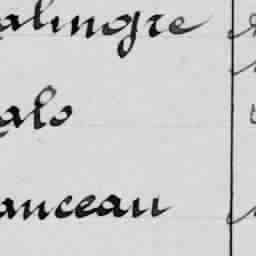 alingre
alo
anceau